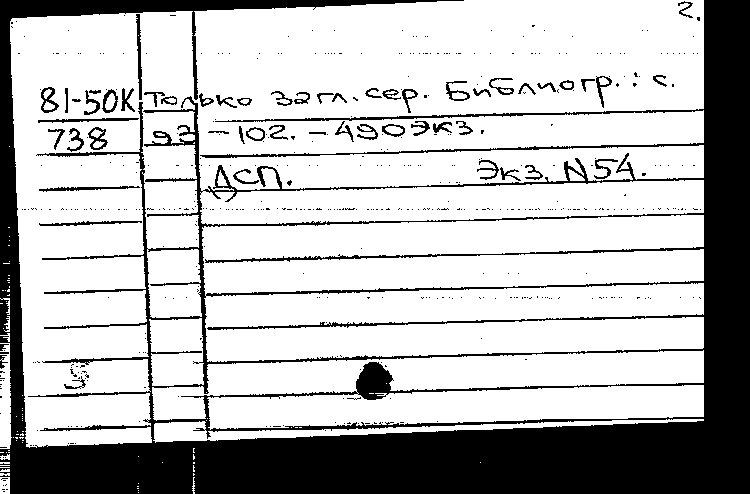 2.
81-50К Только загл. сер. Библиогр.: с.
738 93 -102. - 490экз.
ДСП. Экз. N54.